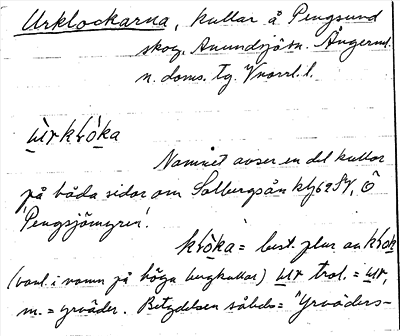 Urklockarna, kullar å Pengsund
skog, Anundsjö sn. Ångerml.
n. doms. tg. Vnorrl. l.
ùrklòka
Namnet avser en del kullar
på båda sidor om Solbergsån
'Pengsjömyren'.
klòka = best. plur av
(vanl. i namn på höga bergkullar) ur trol. = ur,
m. = yrväder. Betydelsen således = "Yrväders-